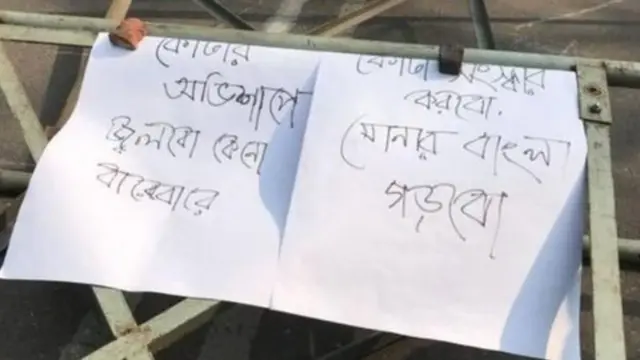 কোটার
অভিশাপে
ঝুলবো কেনো
বারেবারে
কোটা সংস্কার
করবো.
সোনার বাংলা
গড়বো